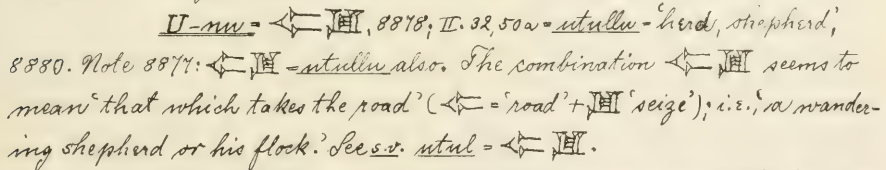 U-nu = 𒀖, 8878; II. 32, 50a = utullu = 'herd, shepherd',
8880. Note 8877: = utullu also. The combination seems to
mean 'that which takes the road' ( = 'road' + 'seize'); i.e., 'a wander-
ing shepherd or his flock.' See s.v. utul = .